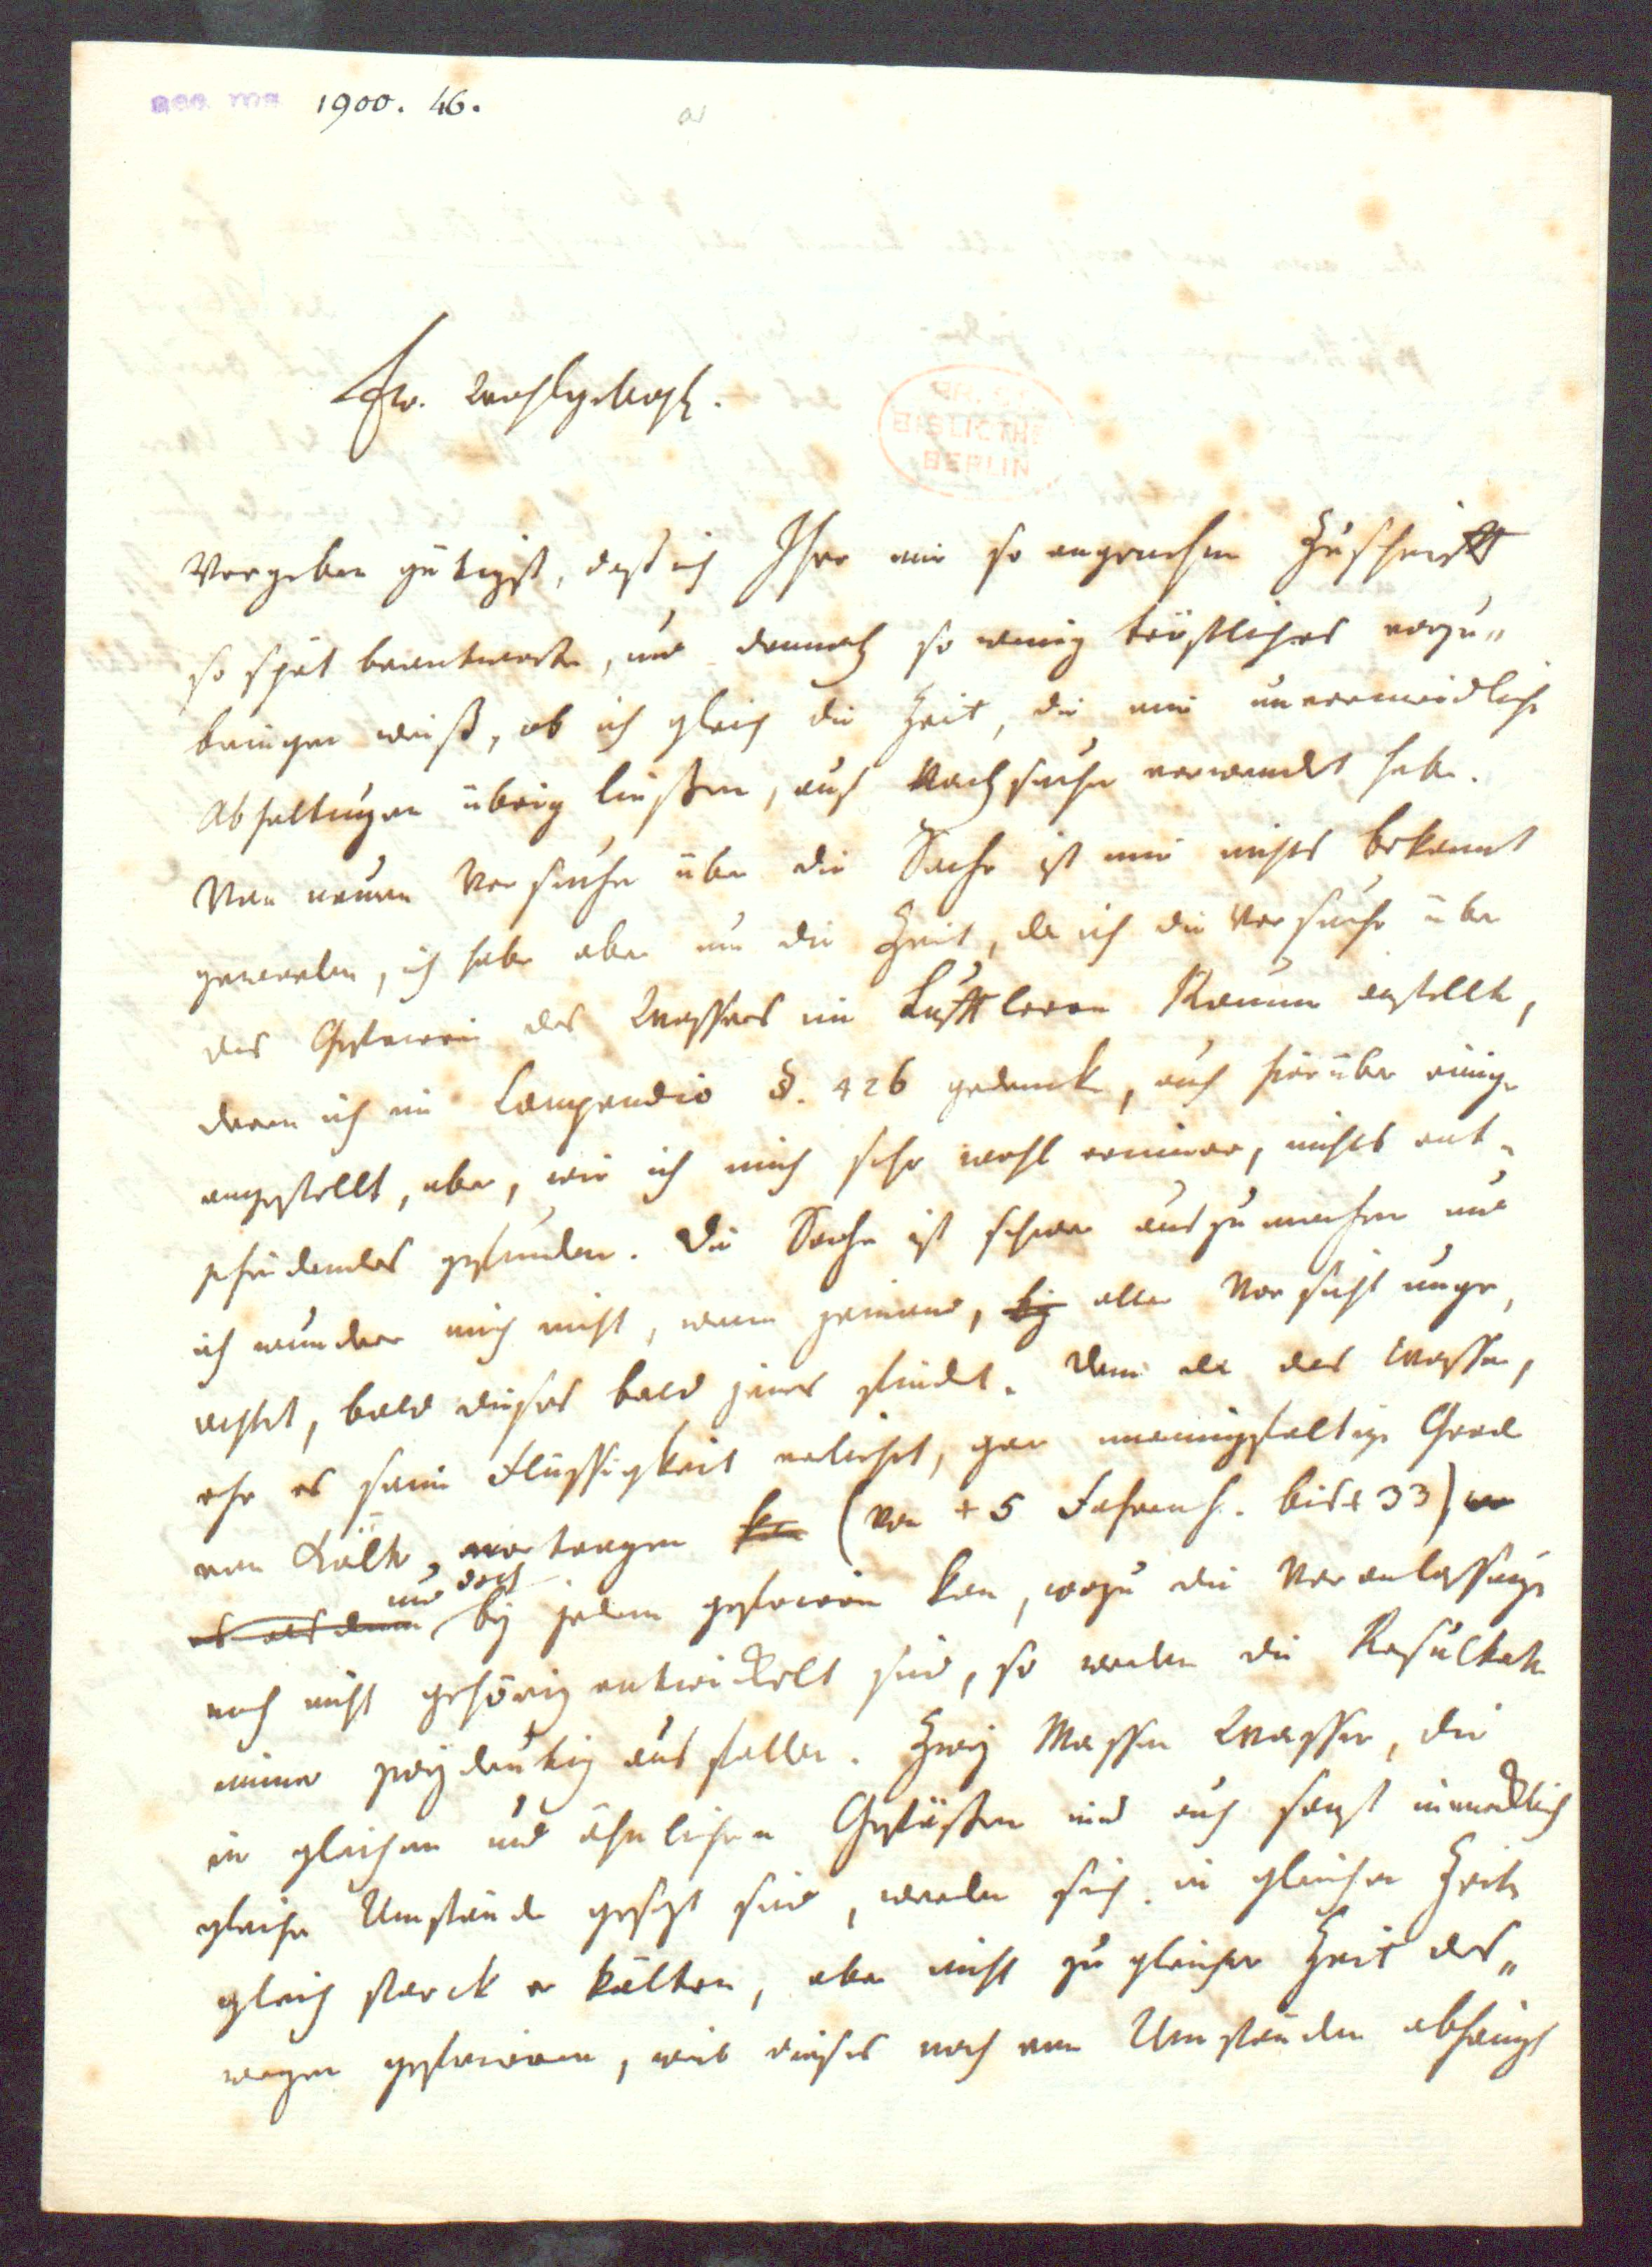 acc. ms. 1900. 46.
Ew. Wohlgebohr.
BIBLIOTHEK
BERLIN
Vergeben gütigst, daß ich Ihre mir so angenehme Zuschrifft
so spät beantworte, und dennoch so wenig tröstliches vorzu„
bringen weiß, ob ich gleich die Zeit, die mir unvermeidliche
Abhaltungen übrig ließen, aufs Nachsuchen verwendet habe.
Von neuen Versuchen über die Sache ist mir nichts bekannt
geworden, ich habe aber um die Zeit, da ich die Versuche über
das Gefrieren des Wassers im Lufftleeren Raum anstellte,
deren ich im Compendio §. 426 gedencke, auch hierüber einige
angestellt, aber, wie ich mich sehr wohl erinnere, nichts ent„
scheidendes gefunden. Die Sache ist schwer auszumachen und
ich wundere mich nicht, wenn jemand, bey aller Vorsicht unge„
achtet, bald dieses bald jenes findet. Denn da das Wasser,
ehe es seine Flüssigkeit verliehrt, gar mannigfaltige Grade
von Kälte vertragen kan (von + 5 Fahrenh. bis + 33)
es als denn und doch bey jedem gefrieren kan, wozu die Veranlassung
noch nicht gehörig entwickelt sind, so werden die Resultate
immer zweydeutig ausfallen. Zwey Massen Wasser, die
in gleichen und ähnlichen Gefäßen und auch sonst in merklich
gleiche Umstände gesezt sind, werden sich in gleichen Zeiten
gleich starck erkälten, aber nicht zu gleicher Zeit des„
wegen gefrieren, weil dieses noch von Umständen abhängt